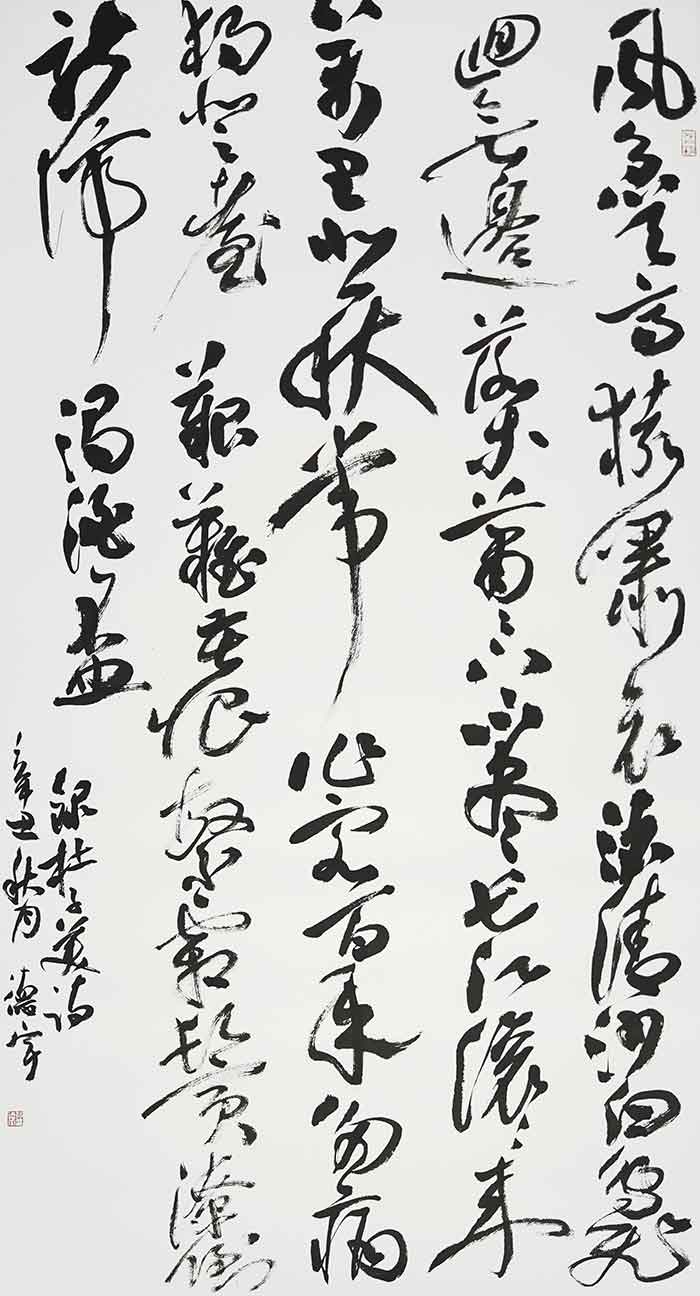 風急天高猿嘯哀渚清沙白鳥飛
迴無邊落木蕭〻下不盡長江滾〻來
萬里悲秋常作客百年多病
獨登臺艱難苦恨繁霜鬢潦倒
新停濁酒盃
錄杜子美詩
辛丑秋月 德宇